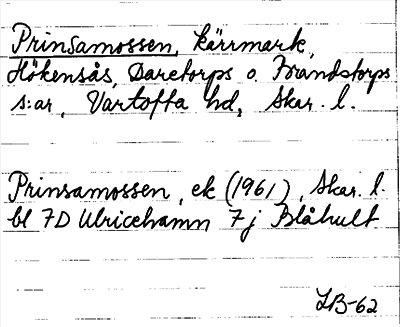 Prinsamossen, kärrmark,
Hökensås, Daretorps o. Brandstorps
s:ar, Vartofta hd, Skar. l.
Prinsamossen, ek (1961), Skar. l.
bl 7D Ulricehamn 7j Blåhult
LB-62